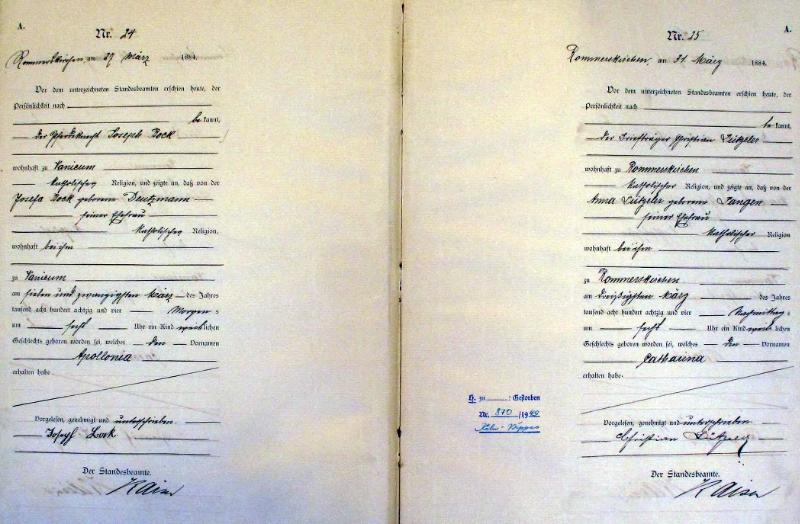 A.
Nr. 24
Rommerskirchen am 27 März 1884.
Vor dem unterzeichneten Standesbeamten erschien heute, der
Persönlichkeit nach
be kannt,
der Pferdeknecht Joseph Bock
wohnhaft zu Vanicum
katholischer Religion, und zeigte an, daß von der
Josefa Bock geborenen
seiner Ehefrau
katholischer Religion,
wohnhaft bei ihm
zu Vanicum
am sieben und zwanzigsten März des Jahres
tausend acht hundert achtzig und vier Morgens
um sechs Uhr ein Kind weiblichen
Geschlechts geboren worden sei, welches den Vornamen
Apollonia
erhalten habe.
Vorgelesen, genehmigt und unterschrieben
Joseph
Der Standesbeamte.
Kaiser
A.
Nr. 25
Rommerskirchen, am 31. März 1884.
Vor dem unterzeichneten Standesbeamten erschien heute, der
Persönlichkeit nach
be kannt,
der Briefträger Christian Lützler
wohnhaft zu Rommerskirchen
katholischer Religion, und zeigte an, daß von der
Anna Lützler geborenen Langen
seiner Ehefrau
katholischer Religion
wohnhaft bei ihm
zu Rommerskirchen
am dreißigsten März des Jahres
tausend acht hundert achtzig und vier Nachmittag
um sechs Uhr ein Kind weiblichen
Geschlechts geboren worden sei, welches den Vornamen
Catharina
erhalten habe.
H. zu : Gestorben
Nr. 870/19
Köln-Nippes
Vorgelesen, genehmigt und unterschrieben
Christian Lützler
Der Standesbeamte.
Kaiser